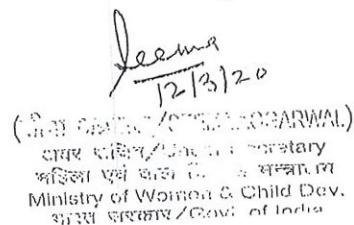 Seema
12/3/20
AGGARWAL)
अवर सचिव/Under Secretary
महिला एवं बाल विकास मन्त्रालय
Ministry of Women & Child Dev.
भारत सरकार/Govt. of India